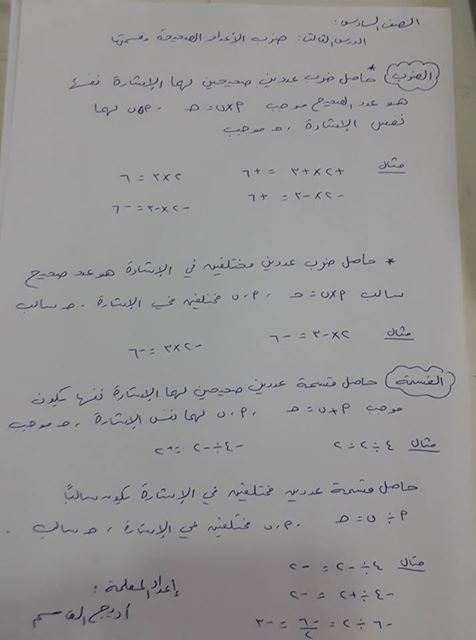 الصف السادس:
الدرس الثالث: ضرب الأعداد الصحيحة وقسمتها
الضرب * حاصل ضرب عددين صحيحين لها الإشارة نفسها
هو عدد الصحيح موجب م×ن=ح م،ن لهما
نفس الإشارة، ح موجب
مثال +٢×+٣ = +٦ ٢×٣=٦
-٢×-٣ = +٦ -٢×-٣=-٦
* حاصل ضرب عددين مختلفين في الإشارة هو عدد صحيح
سالب م×ن=ح م،ن مختلفين في الإشارة، ح سالب
مثال ٢×-٣=-٦ -٢×٣=-٦
القسمة حاصل قسمة عددين صحيحين لها الإشارة نفسها يكون
موجب م÷ن=ح م،ن لهما نفس الإشارة، ح موجب
مثال ٤÷٢=٢ -٤÷-٢=+٢
حاصل قسمة عددين مختلفين في الإشارة يكون سالباً
م÷ن=ح م،ن مختلفين في الإشارة، ح سالب
مثال ٤÷-٢=-٢
-٤÷+٢=-٢ إعداد المعلمة:
-٦÷٢=-٦/٢=-٣ أريج القاسم